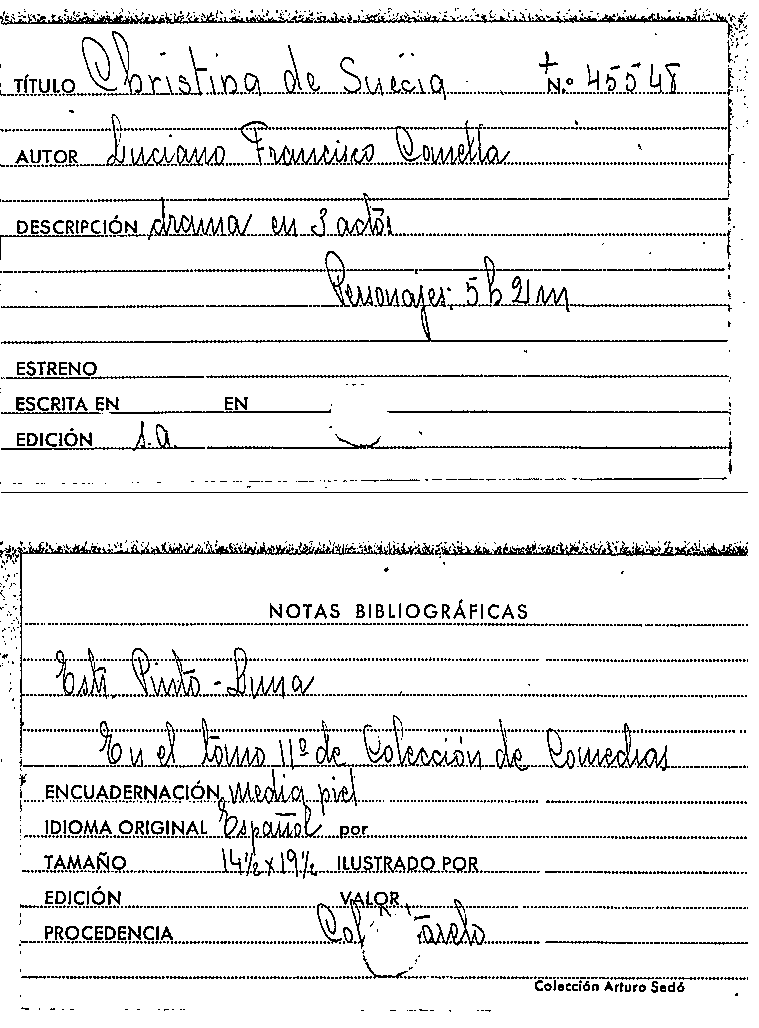 TÍTULO Christina de Suecia + N.º 45548
AUTOR Luciano Francisco Comella
DESCRIPCIÓN drama en 3 actos
Personajes: 5 h 2 m
ESTRENO
ESCRITA EN EN
EDICIÓN s.a.
NOTAS BIBLIOGRÁFICAS
Pinto-Luna
En el tomo 11º de Colección de Comedias
ENCUADERNACIÓN media piel
IDIOMA ORIGINAL Español por
TAMAÑO 14½ x 19½ ILUSTRADO POR
EDICIÓN VALOR
PROCEDENCIA Col
Colección Arturo Sedó